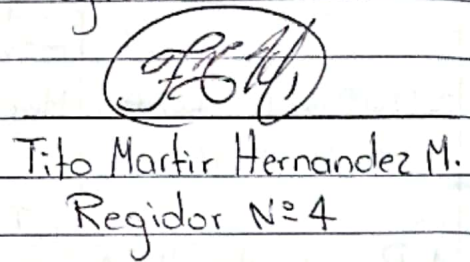 Tito Martir Hernandez M.
Regidor Nº 4